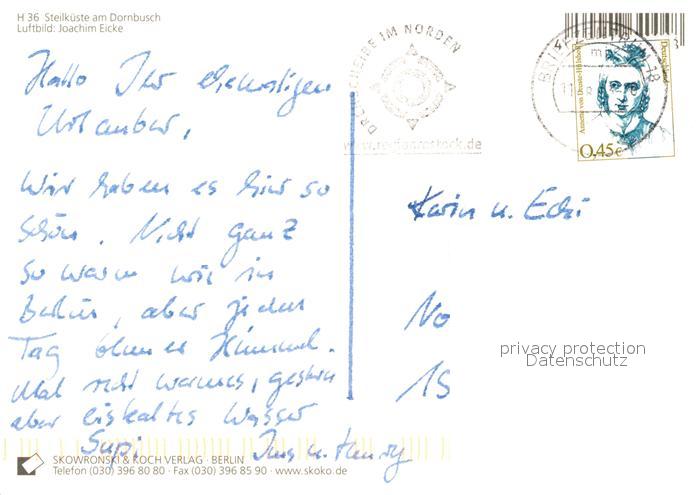 H 36 Steilküste am Dornbusch
Luftbild: Joachim Eicke
Hallo Ihr ehemaligen
Urlauber,
Wir haben es hier so
schön. Nicht ganz
so warm wie in
Berlin, aber jeden
Tag blauer Himmel.
Mal recht warmes, gestern
aber eiskaltes Wasser
Supi. Ines u. Henry
DREHSCHEIBE IM NORDEN
www.regionrostock.de
BRIEFZENTRUM 18
Deutschland
Annette von Droste-Hülshoff
0,45€
Karin u. Ecki
No
15
privacy protection
Datenschutz
SKOWRONSKI & KOCH VERLAG · BERLIN
Telefon (030) 396 80 80 · Fax (030) 396 85 90 · www.skoko.de